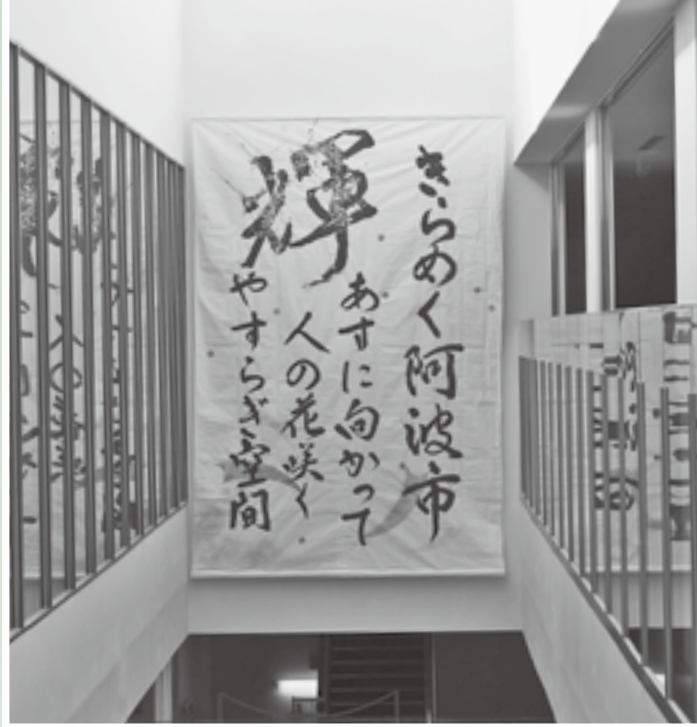 きらめく阿波市
輝
あすに向かって
人の花咲く
やすらぎ空間